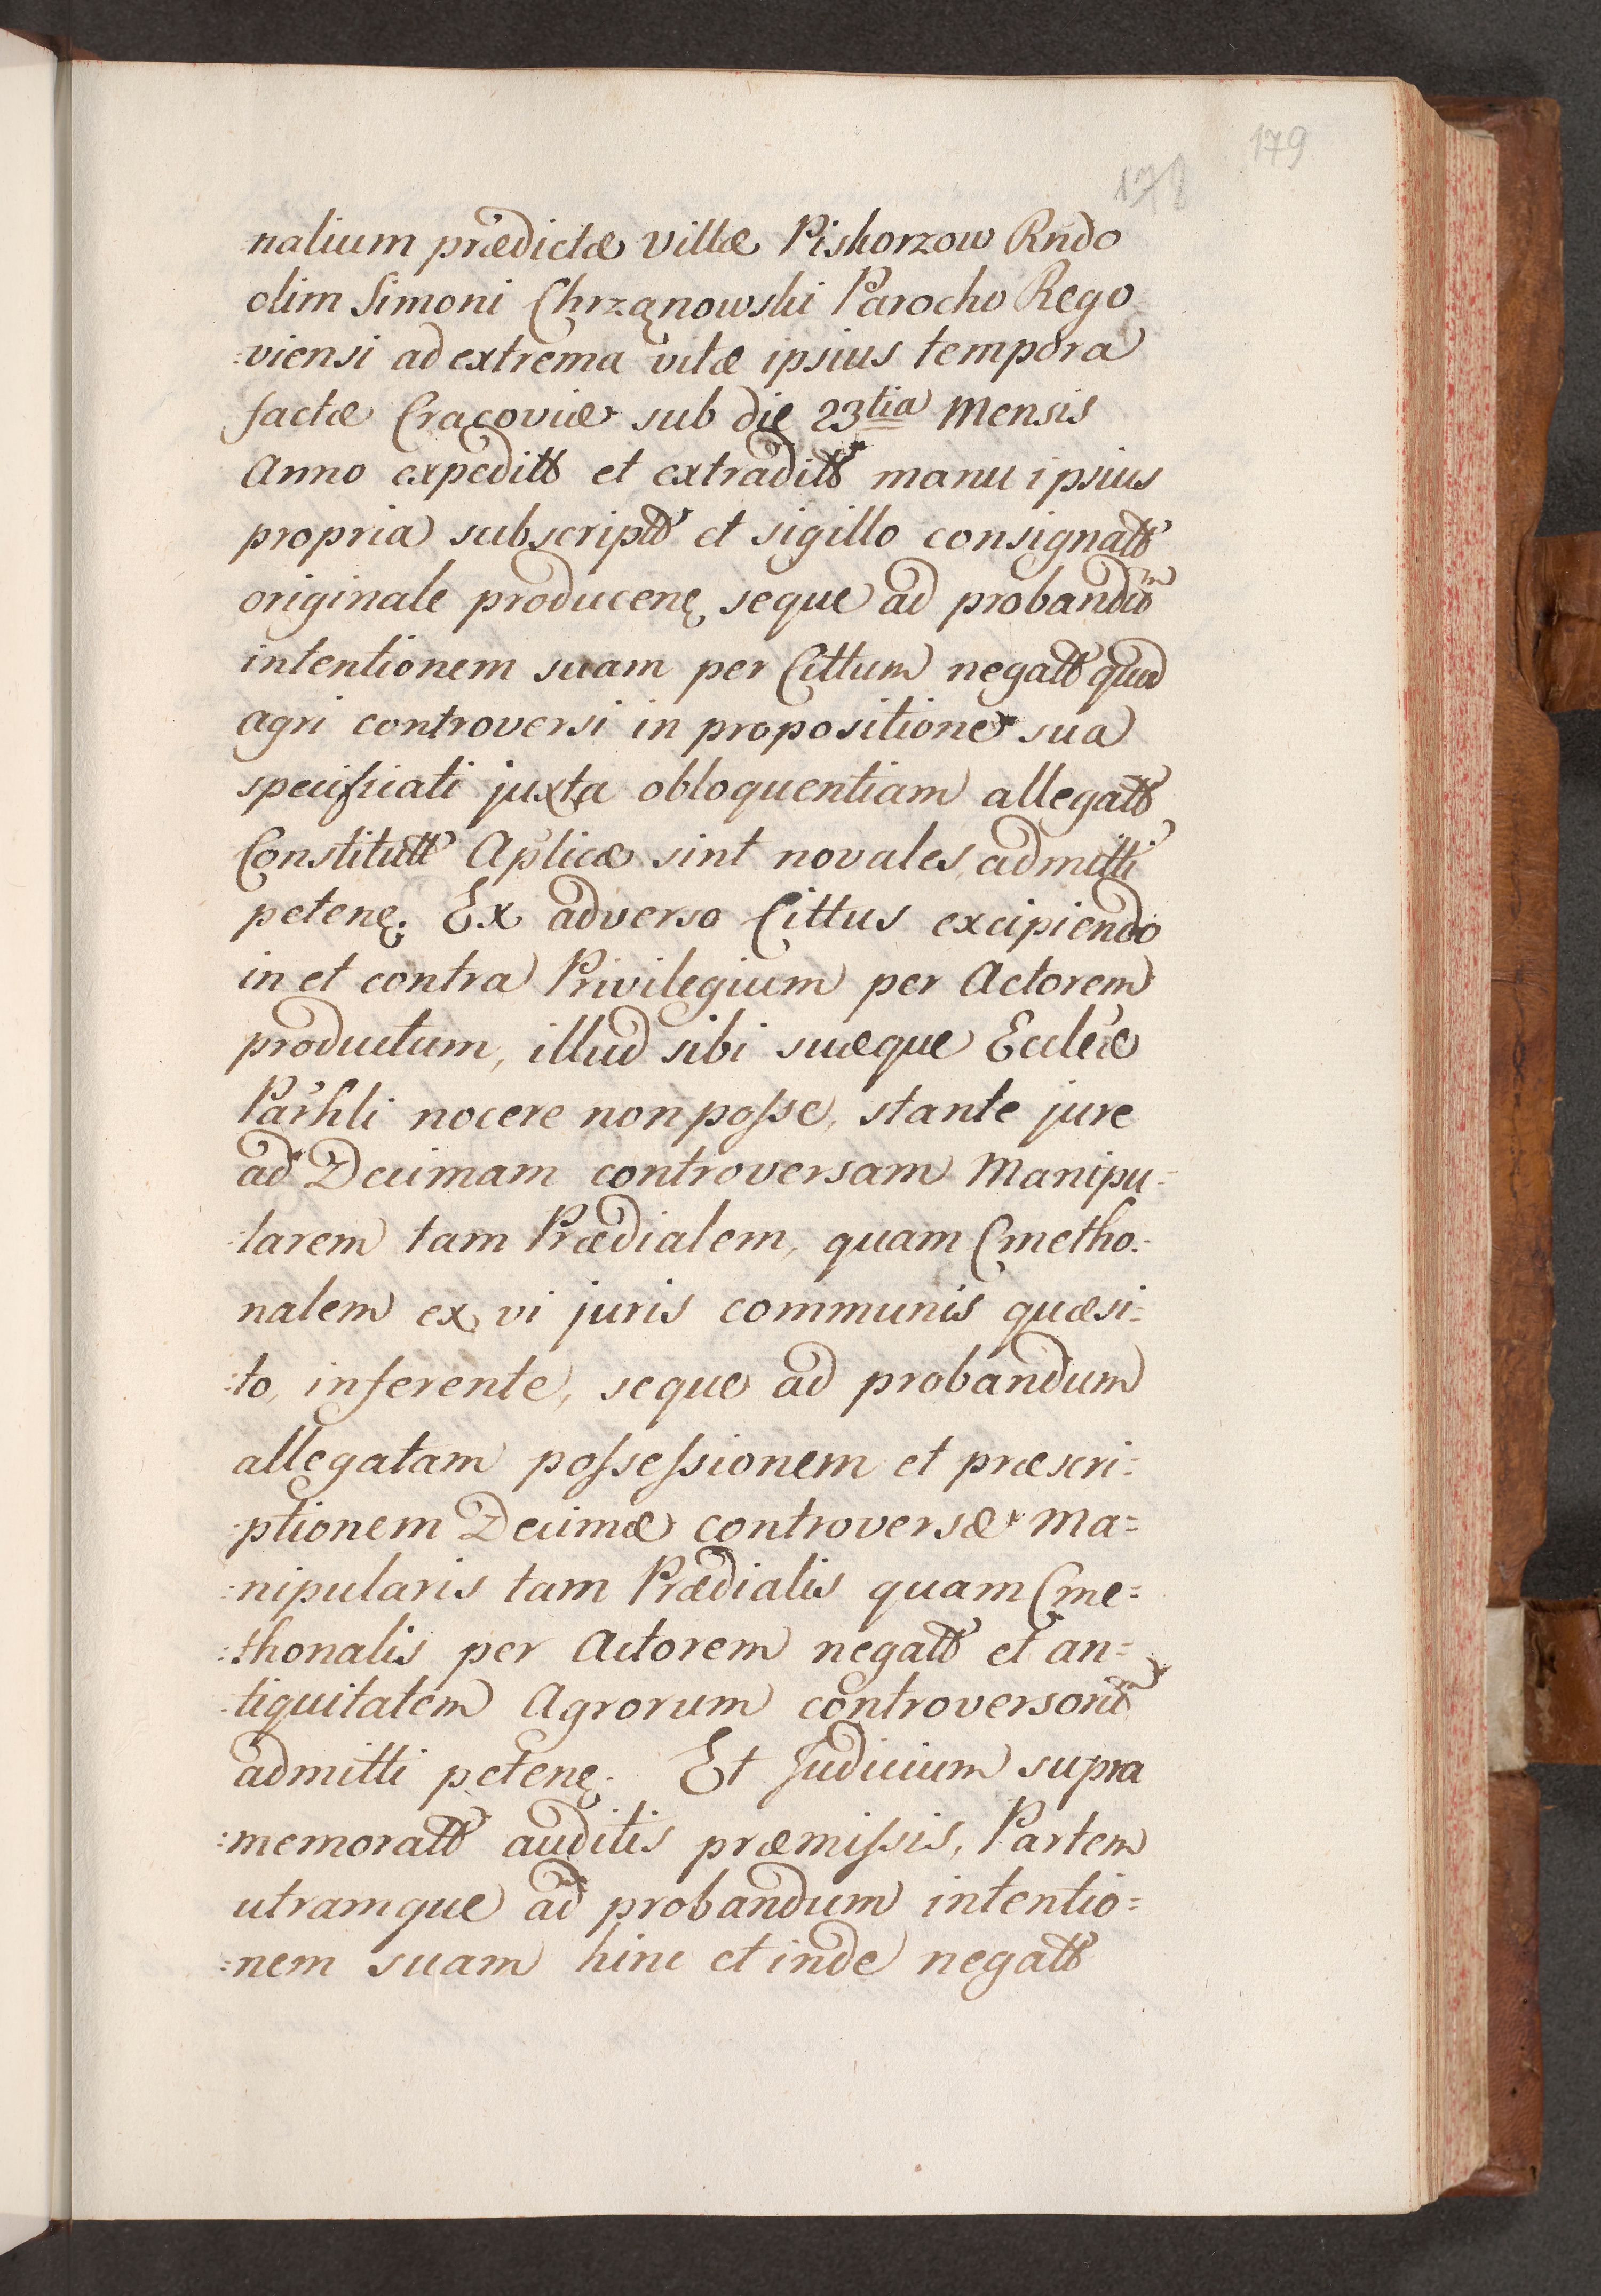 179
178
nalium prædictæ villæ Piskorzow Rńdo
olim Simoni Chrząnowski Parocho Rego
:viensi ad extrema vitæ ipsius tempora
factæ Cracoviæ sub die 23tia Mensis
Anno expeditt et extraditt manu ipsius
propria subscriptt et sigillo consignatt
originale producenę seque ad probandum
intentionem suam per Cittum negatt quod
agri controversi in propositione sua
specificati juxta obloquentiam allegatt
Constitutt Aplicæ sint novales, admitti
petenę. Ex adverso Cittus excipiendo
in et contra Privilegium per Actorem
productum, illud sibi suæque Eccleæ
Parhli nocere non posse, stante jure
ad Decimam controversam Manipu-
:larem tam Prædialem, quam Cmetho:
nalem ex vi juris communis quæsi:
:to, inferente, seque ad probandum
allegatam possessionem et præscri:
:ptionem Decimæ controversæ Ma=
:nipularis tam Prædialis quam Cme=
:thonalis per Actorem negatt et an=
:tiquitatem Agrorum controversoru
admitti petenę. Et Judicium supra
:memoratt auditis præmissis, Partem
utramque ad probandum intentio=
:nem suam hinc et inde negatt